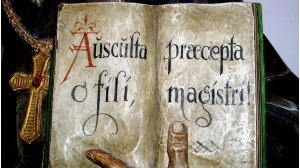 Ausculta
o fili,
præcepta
magistri!